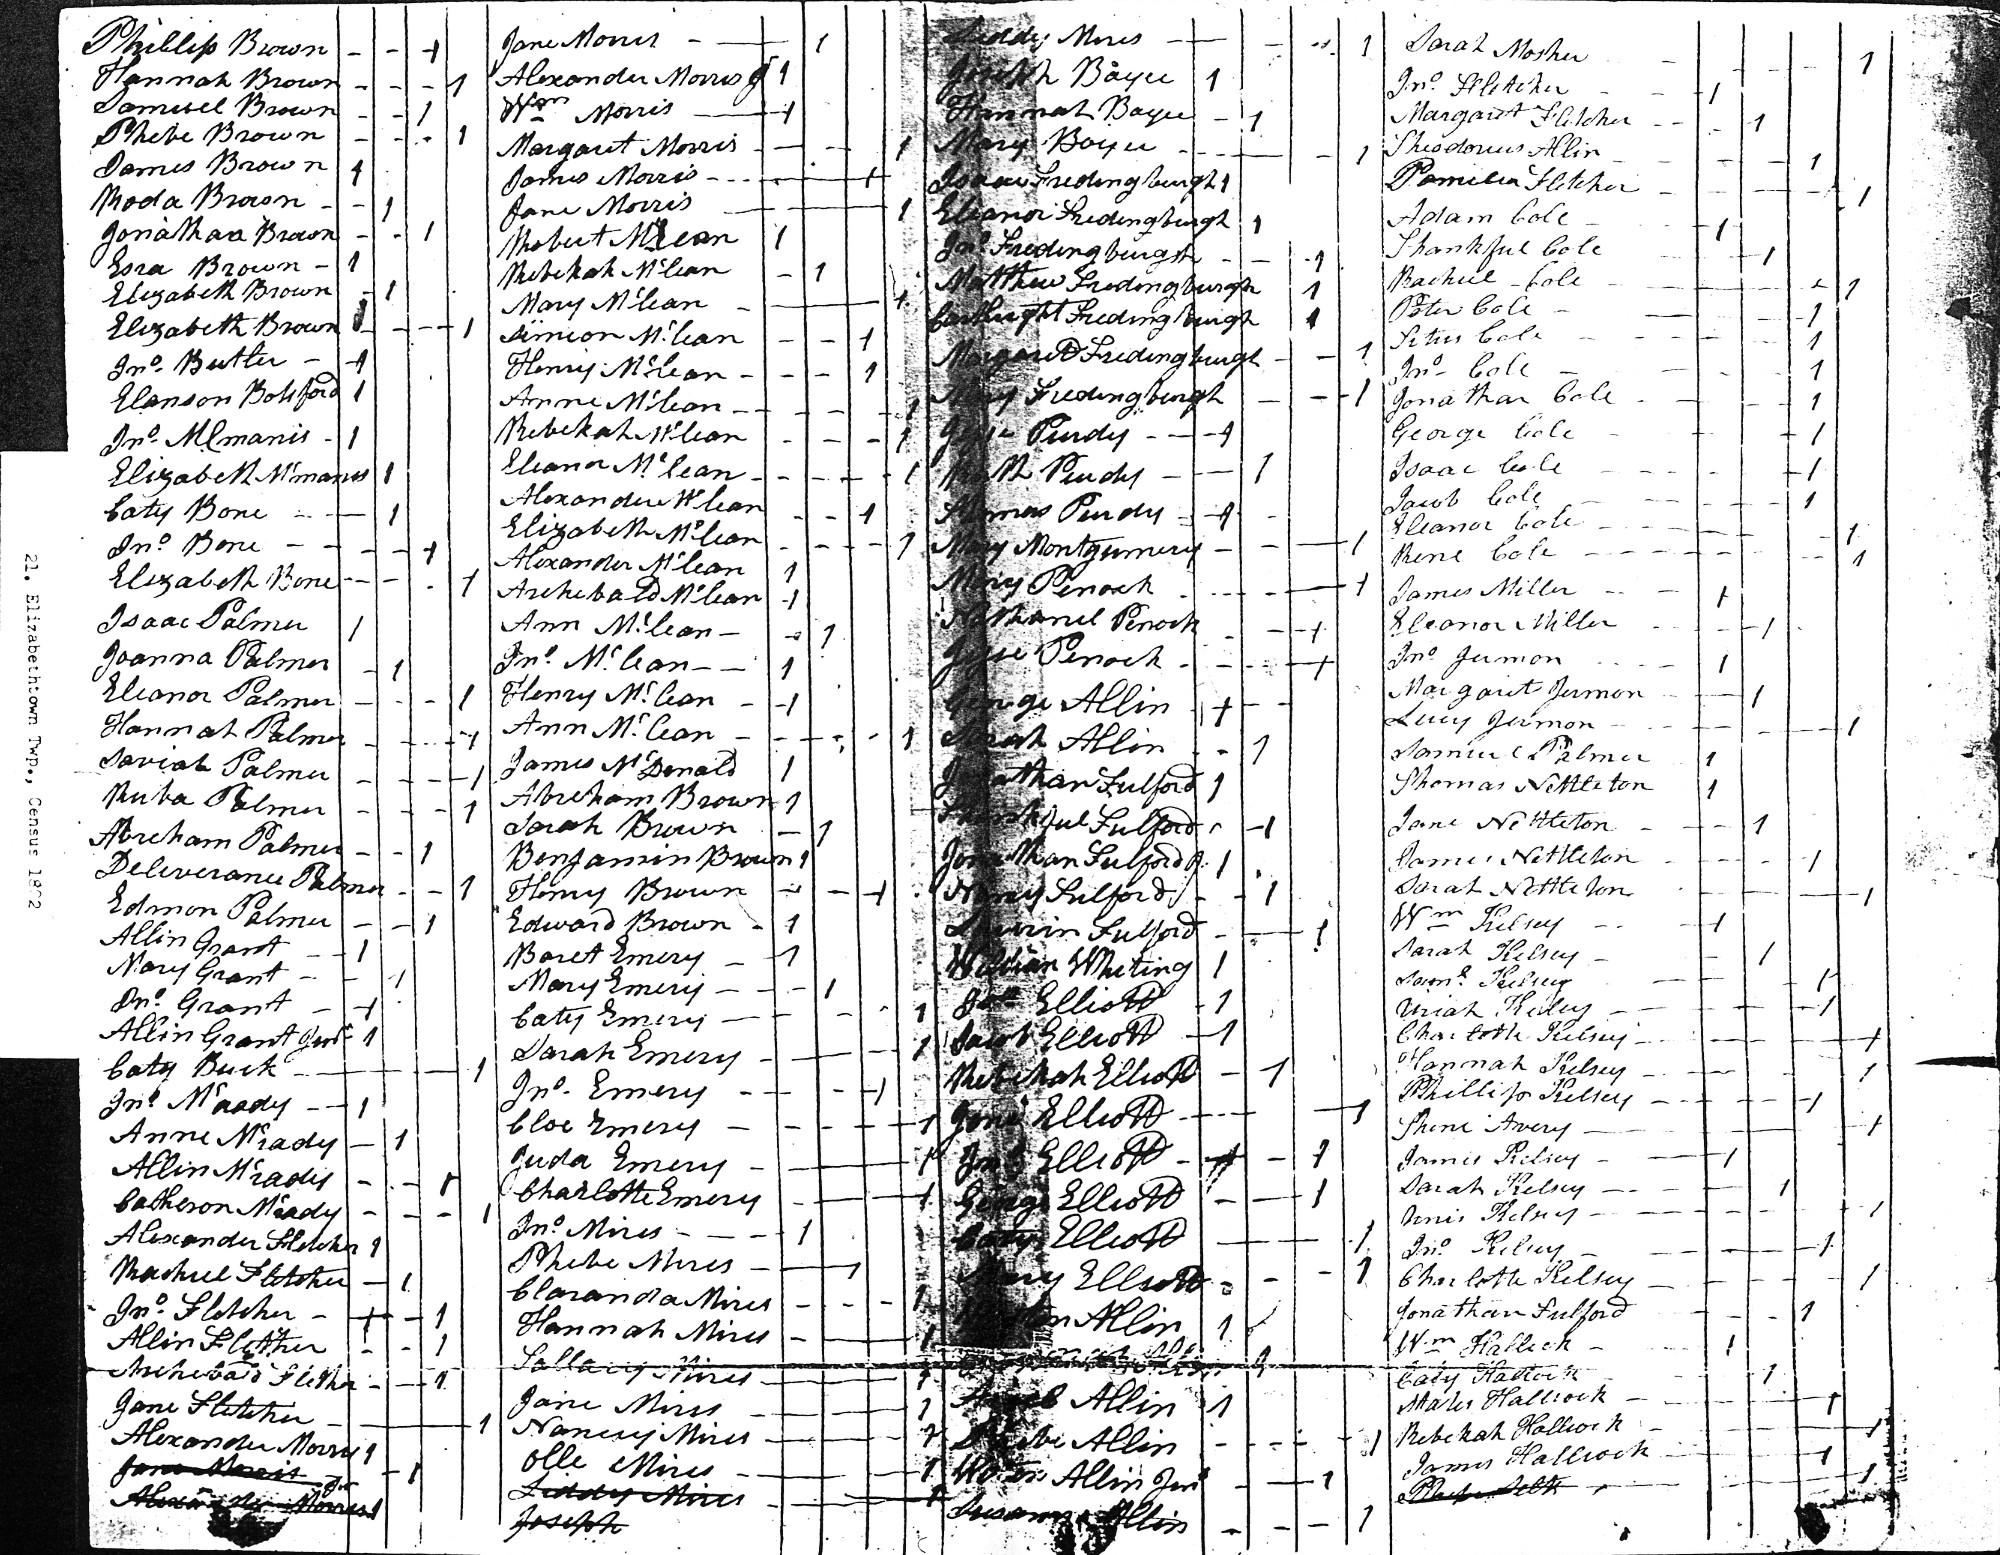 Phillip Brown
Hannah Brown
Samuel Brown
Phebe Brown
James Brown
Roda Brown
Jonathan Brown
Esra Brown
Elizabeth Brown
Elizabeth Brown
Jno. Butler
Elanson Botsford
Jno. McManis
Elizabeth McManis
Caty Bone
Jno. Bone
Elizabeth Bone
Isaac Palmer
Joanna Palmer
Eleanor Palmer
Hannah Palmer
Saviah Palmer
Ruba Palmer
Abreham Palmer
Deliverance Palmer
Edmon Palmer
Allin Grant
Mary Grant
Jno. Grant
Allin Grant Junr
Caty Buck
Jno. Mcrady
Anne Mcrady
Allin Mcrady
Catheron Mcrady
Alexander Fletcher
Rachiel Fletcher
Jno. Fletcher
Allin Fletcher
Archebald Fletcher
Jane Fletcher
Alexander Morris
Jane Morris
Alexander Morris Jr
Jane Morris
Alexander Morris Jr
Wm Morris
Margaret Morris
James Morris
Jane Morris
Robert McLean
Rebekah McLean
Mary McLean
Simeon McLean
Henry McLean
Anne McLean
Rebekah McLean
Eleanor McLean
Alexander McLean
Elizabeth McLean
Alexander McLean
Archebald McLean
Ann McLean
Jno. McLean
Henry McLean
Ann McLean
James McDonald
Abreham Brown
Sarah Brown
Benjamin Brown
Henry Brown
Edward Brown
Baret Emery
Mary Emery
Caty Emery
Sarah Emery
Jno. Emery
Cloe Emery
Juda Emery
Charlotte Emery
Jno. Mires
Phebe Mires
Claranda Mires
Hannah Mires
Sallary Mires
Jane Mires
Nancy Mires
Olle Mires
Liddy Mires
Joseph
Liddy Mires
Joseph Bayee
Hannah Bayee
Mary Boyee
Isaac Fredingburgh
Eleanor Fredingburgh
Jno. Fredingburgh
Matthew Fredingburgh
Fredingburgh
Margaret Fredingburgh
Mary Fredingburgh
Purdy
Ruth Purdy
Purdy
Mary Montgumery
Mary Penock
Nathanel Penock
Jesse Penock
George Allin
Sarah Allin
Jonathan Fulford
Thankful Fulford
Jonathan Fulford Jr
Nancy Fulford
Fulford
William Whiting
Elliott
Jacob Elliott
Rebekah Elliott
Jane Elliott
Jno. Elliott
George Elliott
Caty Elliott
Mary Elliott
Allin
Allin
Phebe Allin
Allin Junr
Susanna Allin
Sarah Mosher
Jno. Fletcher
Margaret Fletcher
Theodorus Allin
Pamelia Fletcher
Adam Cole
Thankful Cole
Rachiel Cole
Peter Cole
Titus Cole
Jno. Cole
Jonathan Cole
George Cole
Isaac Cole
Jacob Cole
Eleanor Cole
Rene Cole
James Miller
Eleanor Miller
Jno. Jermon
Margaret Jermon
Lucy Jermon
Samuel Palmer
Thomas Nettleton
Jane Nettleton
James Nettleton
Sarah Nettleton
Wm Kelsey
Sarah Kelsey
Saml. Kelsey
Uriah Kelsey
Charlotte Kelsey
Hannah Kelsey
Phillip Kelsey
Avery
James Kelsey
Sarah Kelsey
Unis Kelsey
Jno. Kelsey
Charlotte Kelsey
Jonathan Fulford
Wm Hallock
Caty Hallock
Hallock
Rebekah Hallock
James Hallock
21. Elizabethtown Twp., Census 1822